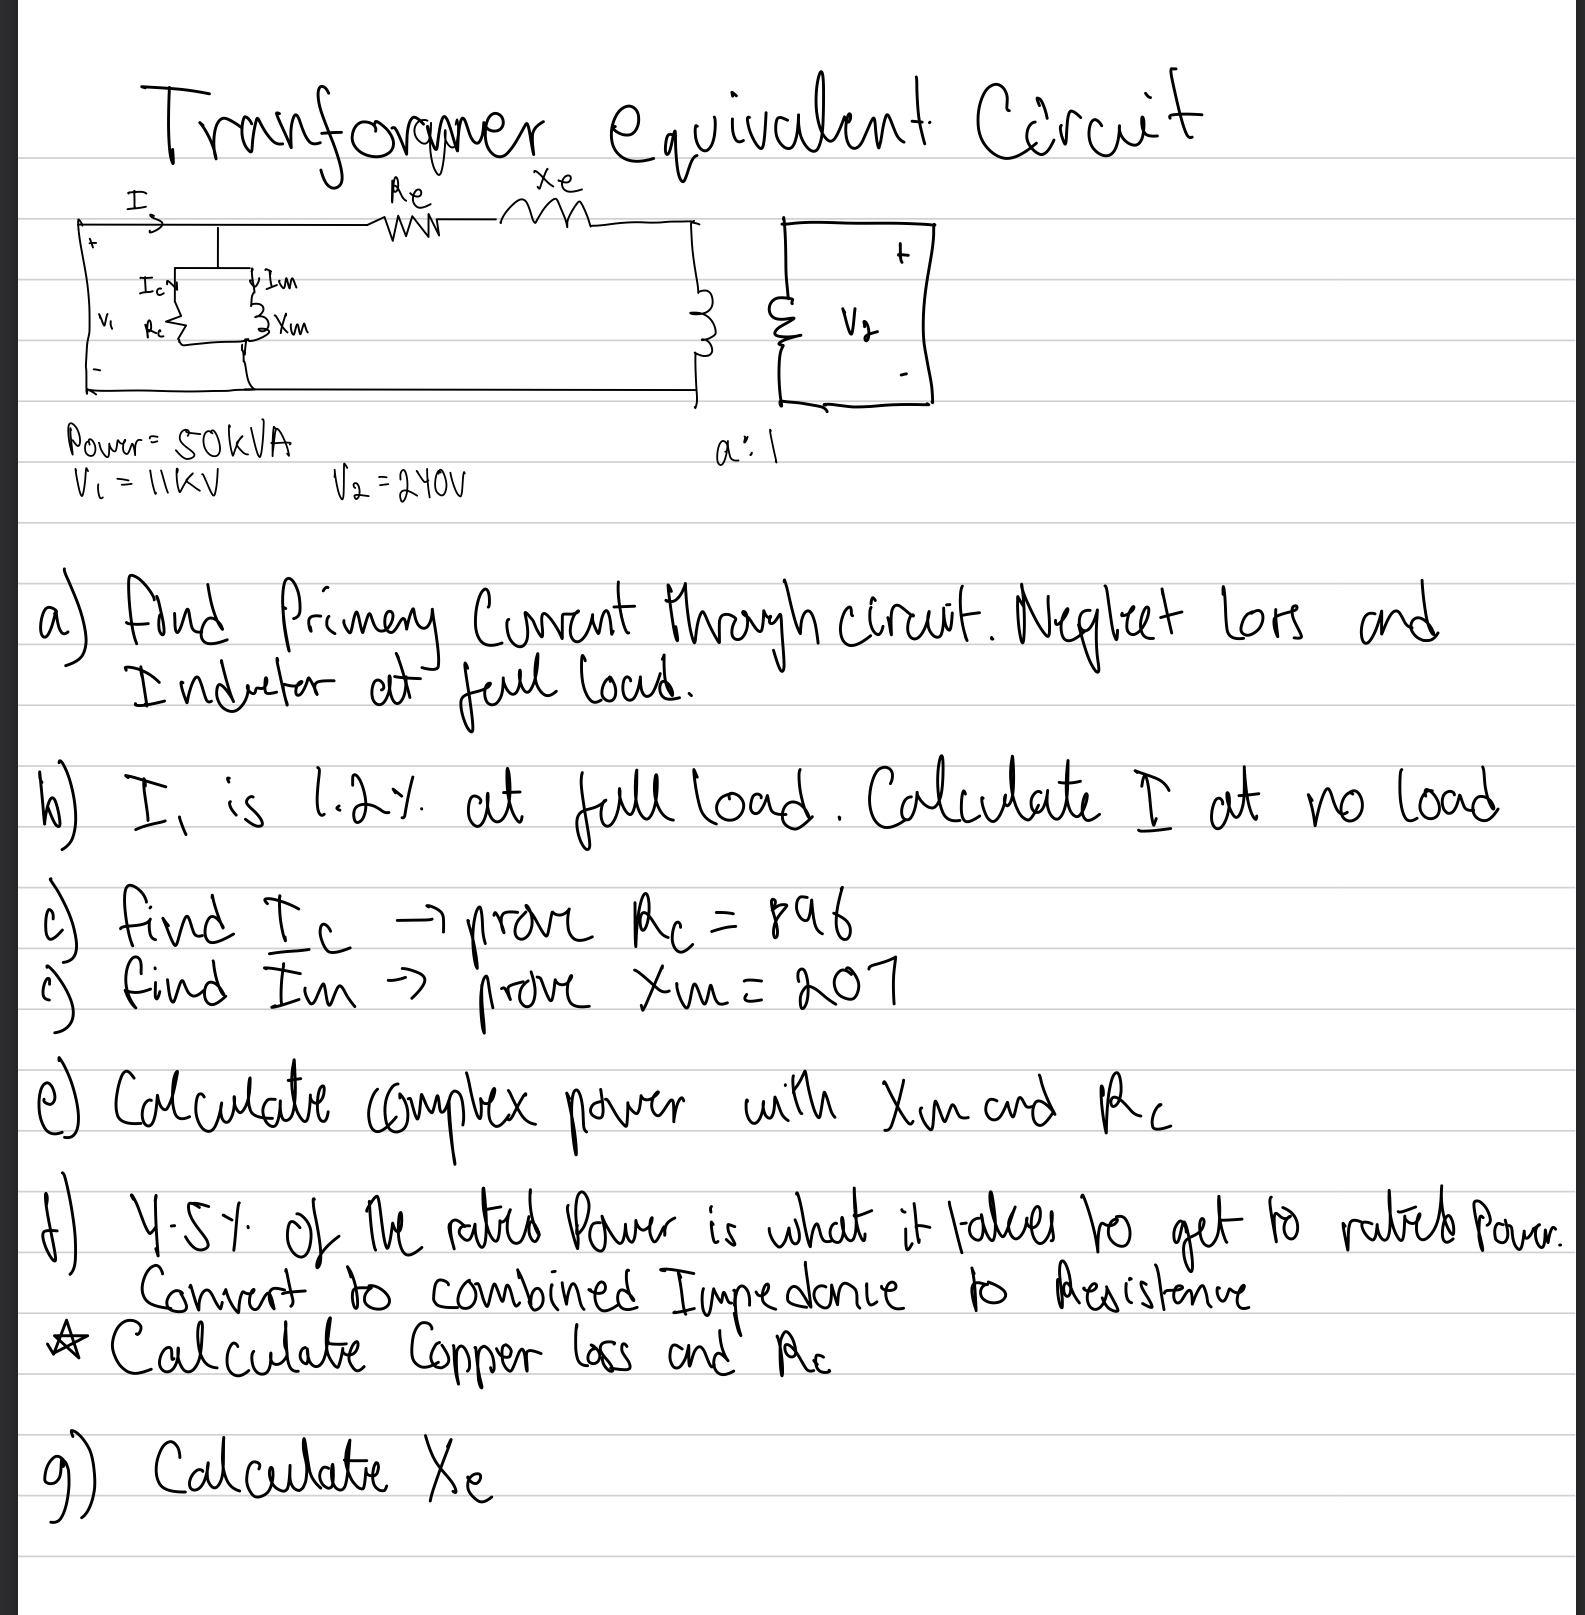 Tranforqmer equivalent Circuit
I Re Xe
+ +
Ic Im
V1 Rc Xm V2
- -
Power = 50kVA a:1
V1 = 11KV V2 = 240V
a) find Primery Current through circuit. Neglect Loss and
Inductor at full load.
b) I1 is 1.2% at full load. Calculate I at no load
c) find Ic → prove Rc = 896
c) find Im → prove Xm = 207
e) Calculate complex power with Xm and Rc
f) 4.5% of the rated Power is what it takes to get to rated Power.
Convert to combined Impedance to Resistence
☆ Calculate Copper loss and Rc
g) Calculate Xe